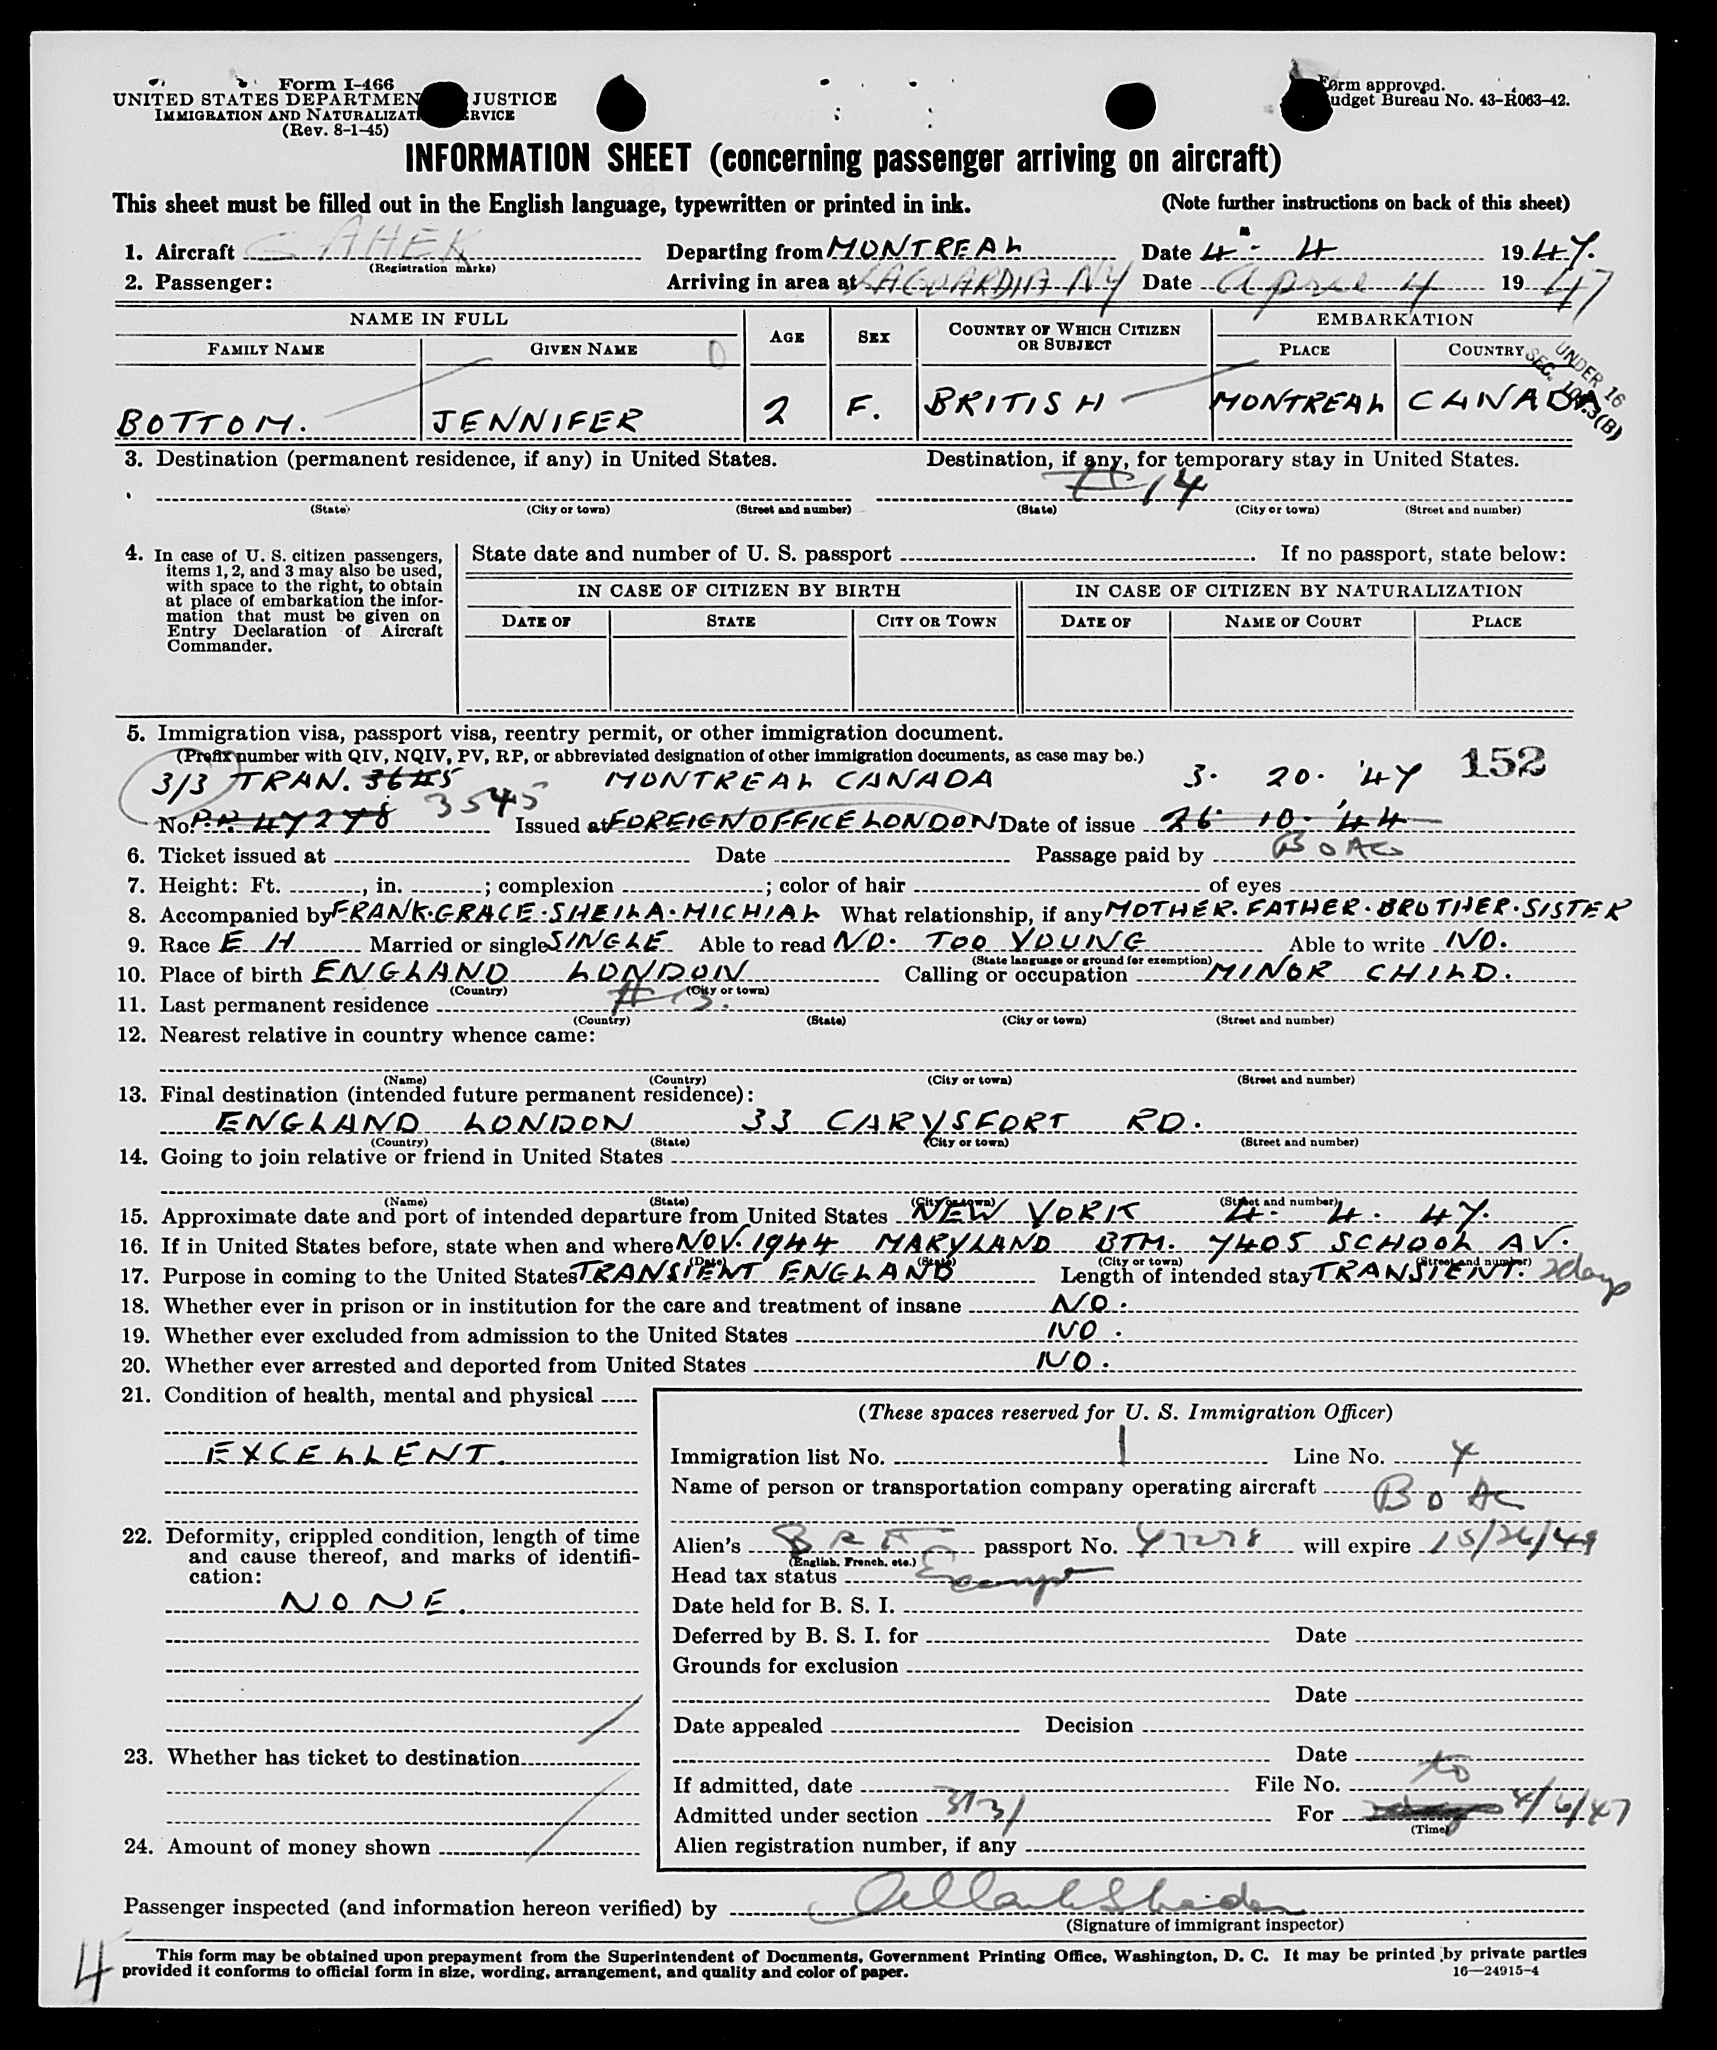 Form I-466
UNITED STATES DEPARTMENT JUSTICE
IMMIGRATION AND NATURALIZATI SERVICE
(Rev. 8-1-45)
Form approved.
Budget Bureau No. 43-R063-42.
INFORMATION SHEET (concerning passenger arriving on aircraft)
This sheet must be filled out in the English language, typewritten or printed in ink. (Note further instructions on back of this sheet)
1. Aircraft G AHEK Departing from MONTREAL Date 4 - 4 1947.
(Registration marks)
2. Passenger: Arriving in area at LAGUARDIA NY Date April 4 1947
NAME IN FULL AGE SEX COUNTRY OF WHICH CITIZEN OR SUBJECT EMBARKATION
FAMILY NAME GIVEN NAME PLACE COUNTRY
UNDER 16
SEC. 107.3(B)
BOTTOM. JENNIFER 2 F. BRITISH MONTREAL CANADA
3. Destination (permanent residence, if any) in United States. Destination, if any, for temporary stay in United States.
# 14
(State) (City or town) (Street and number) (State) (City or town) (Street and number)
4. In case of U. S. citizen passengers, items 1, 2, and 3 may also be used, with space to the right, to obtain at place of embarkation the information that must be given on Entry Declaration of Aircraft Commander.
State date and number of U. S. passport If no passport, state below:
IN CASE OF CITIZEN BY BIRTH IN CASE OF CITIZEN BY NATURALIZATION
DATE OF STATE CITY OR TOWN DATE OF NAME OF COURT PLACE
5. Immigration visa, passport visa, reentry permit, or other immigration document.
(Prefix number with QIV, NQIV, PV, RP, or abbreviated designation of other immigration documents, as case may be.)
152
3/3 TRAN. 3645 3545 MONTREAL CANADA 3. 20. '47
No. P.P. 47278 Issued at FOREIGN OFFICE LONDON Date of issue 26 10. '44
6. Ticket issued at Date Passage paid by BOAC
7. Height: Ft. , in. ; complexion ; color of hair of eyes
8. Accompanied by FRANK. GRACE. SHEILA. MICHIAL What relationship, if any MOTHER. FATHER. BROTHER. SISTER
9. Race E H Married or single SINGLE Able to read NO. TOO YOUNG Able to write NO.
(State language or ground for exemption)
10. Place of birth ENGLAND LONDON Calling or occupation MINOR CHILD.
(Country) (City or town)
11. Last permanent residence # 13.
(Country) (State) (City or town) (Street and number)
12. Nearest relative in country whence came:
(Name) (Country) (City or town) (Street and number)
13. Final destination (intended future permanent residence):
ENGLAND LONDON 33 CARYSFORT RD.
(Country) (State) (City or town) (Street and number)
14. Going to join relative or friend in United States
(Name) (State) (City or town) (Street and number)
15. Approximate date and port of intended departure from United States NEW YORK 4. 4. 47.
16. If in United States before, state when and where NOV. 1944 MARYLAND BTM. 7405 SCHOOL AV.
(Date) (State) (City or town) (Street and number)
17. Purpose in coming to the United States TRANSIENT ENGLAND Length of intended stay TRANSIENT. 2 days
18. Whether ever in prison or in institution for the care and treatment of insane NO.
19. Whether ever excluded from admission to the United States NO.
20. Whether ever arrested and deported from United States NO.
21. Condition of health, mental and physical
EXCELLENT.
22. Deformity, crippled condition, length of time and cause thereof, and marks of identification:
NONE.
23. Whether has ticket to destination
24. Amount of money shown
(These spaces reserved for U. S. Immigration Officer)
Immigration list No. 1 Line No. 4
Name of person or transportation company operating aircraft BOAC
Alien's BRIT passport No. 47278 will expire
(English, French, etc.)
Head tax status Exempt
Date held for B. S. I.
Deferred by B. S. I. for Date
Grounds for exclusion
Date
Date appealed Decision
Date
If admitted, date File No.
Admitted under section 3(3) For to 4/6/47
(Time)
Alien registration number, if any
Passenger inspected (and information hereon verified) by
(Signature of immigrant inspector)
4
This form may be obtained upon prepayment from the Superintendent of Documents, Government Printing Office, Washington, D. C. It may be printed by private parties
provided it conforms to official form in size, wording, arrangement, and quality and color of paper. 16—24915-4